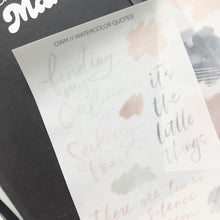 OWM // WATERCOLOR QUOTES
finding
my
Calm
it's
the
little
things
Seeking
Peace
there are times
silence